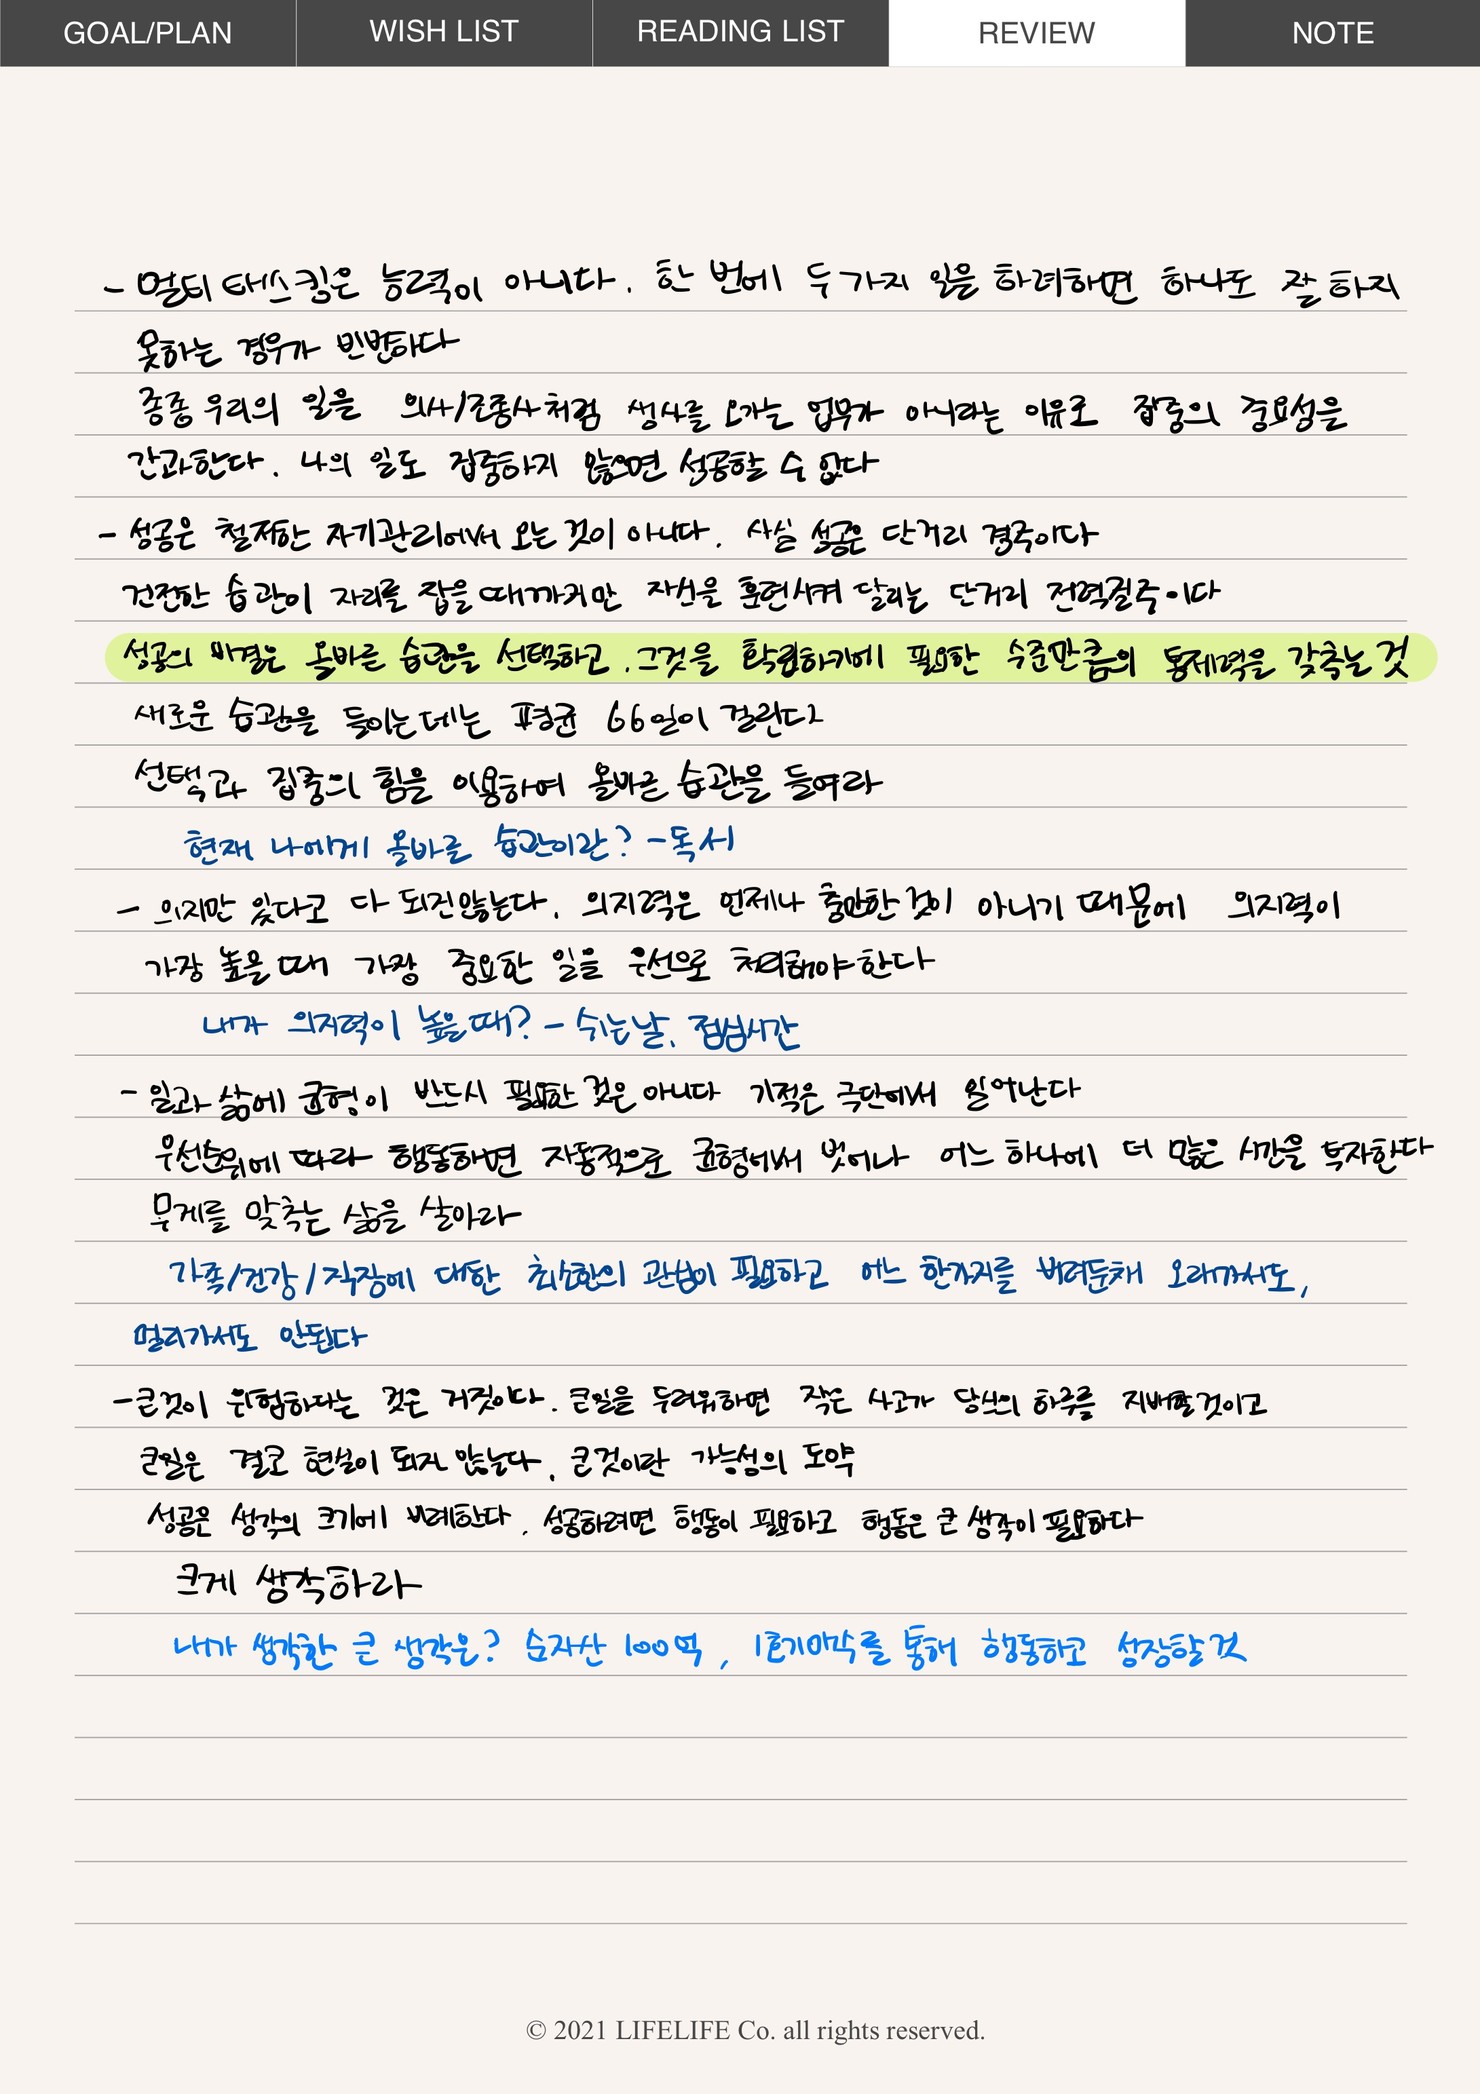 GOAL/PLAN WISH LIST READING LIST REVIEW NOTE
- 멀티태스킹은 능력이 아니다. 한 번에 두가지 일을 하려하면 하나도 잘 하지
못하는 경우가 빈번하다
종종 우리의 일을 의사/조종사처럼 생사를 오가는 업무가 아니라는 이유로 집중의 중요성을
간과한다. 나의 일도 집중하지 않으면 성공할 수 없다
- 성공은 철저한 자기관리에서 오는 것이 아니다. 사실 성공은 단거리 경주이다
건전한 습관이 자리를 잡을때까지만 자신을 훈련시켜 달리는 단거리 전력질주이다
성공의 비결은 올바른 습관을 선택하고, 그것을 확립하기에 필요한 수준만큼의 통제력을 갖추는 것
새로운 습관을 들이는데는 평균 66일이 걸린다
선택과 집중의 힘을 이용하여 올바른 습관을 들여라
현재 나에게 올바른 습관이란? - 독서
- 의지만 있다고 다 되진않는다. 의지력은 언제나 충만한것이 아니기 때문에 의지력이
가장 높을때 가장 중요한 일을 우선으로 처리해야한다
내가 의지력이 높을때? - 쉬는날, 점심시간
- 일과 삶에 균형이 반드시 필요한 것은 아니다 기적은 극단에서 일어난다
우선순위에 따라 행동하면 자동적으로 균형에서 벗어나 어느 하나에 더 많은 시간을 투자한다
무게를 맞추는 삶을 살아라
가족/건강/직장에 대한 최소한의 관심이 필요하고 어느 한가지를 버려둔채 오래가서도,
멀리가서도 안된다
- 큰것이 위험하다는 것은 거짓이다. 큰일을 두려워하면 작은 사고가 당신의 하루를 지배할것이고
큰일은 결코 현실이 되지 않는다. 큰것이란 가능성의 도약
성공은 생각의 크기에 비례한다. 성공하려면 행동이 필요하고 행동은 큰 생각이 필요하다
크게 생각하라
내가 생각한 큰 생각은? 순자산 100억, 1호기마삭를 통해 행동하고 성장할것
© 2021 LIFELIFE Co. all rights reserved.